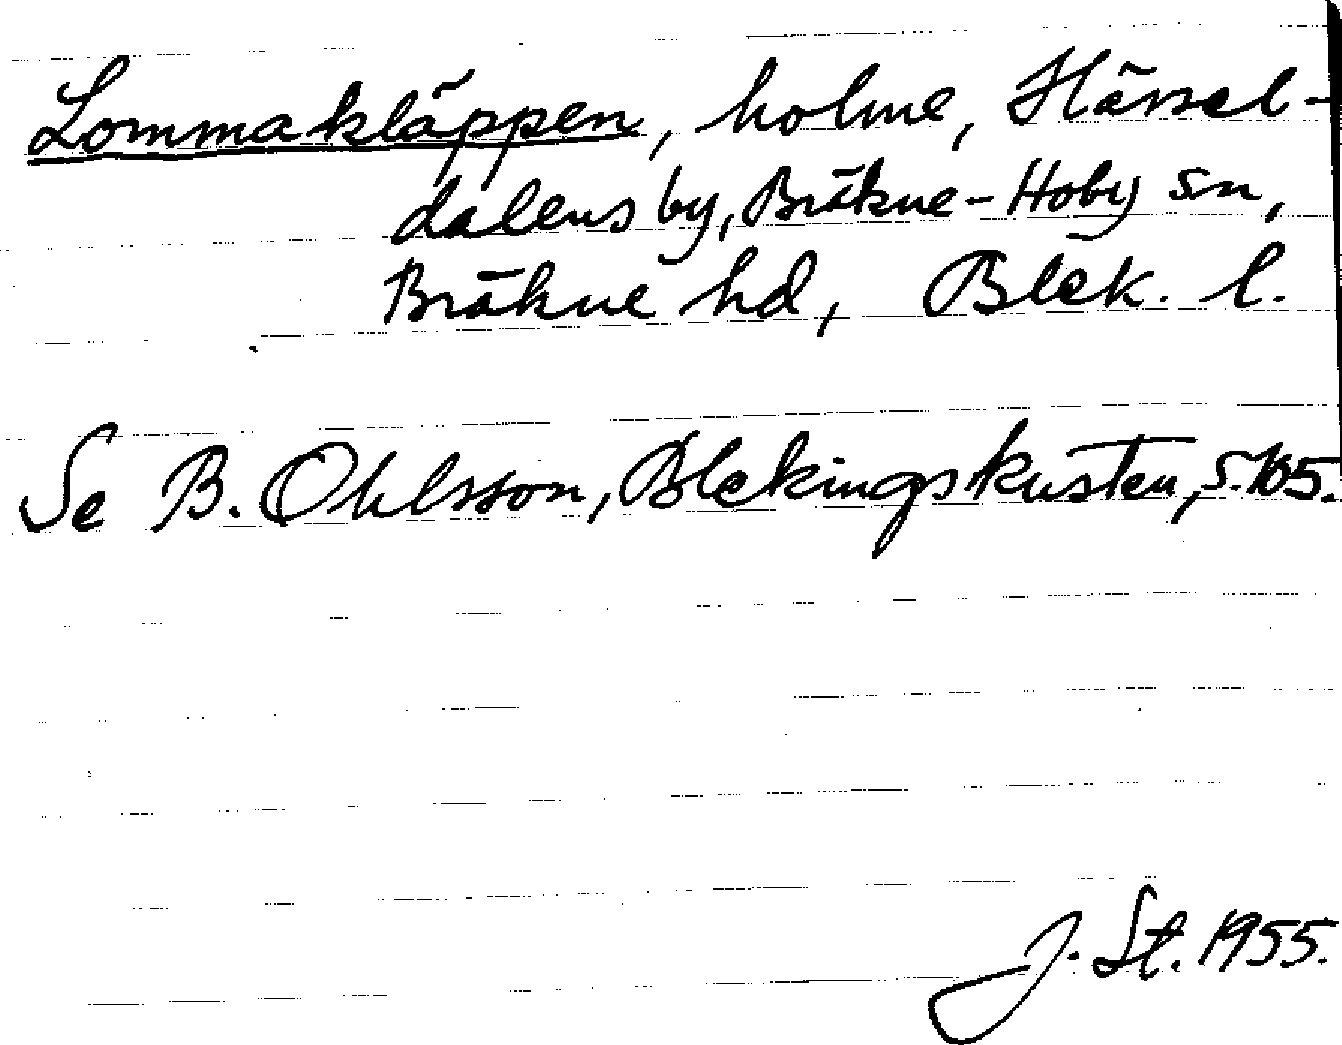 Lommakläppen, holme, Hässel-
dalens by, Bräkne-Hoby sn,
Bräkne hd, Blek. l.
Se B. Ohlsson, Blekingskusten, s. 105.
J. St. 1955.